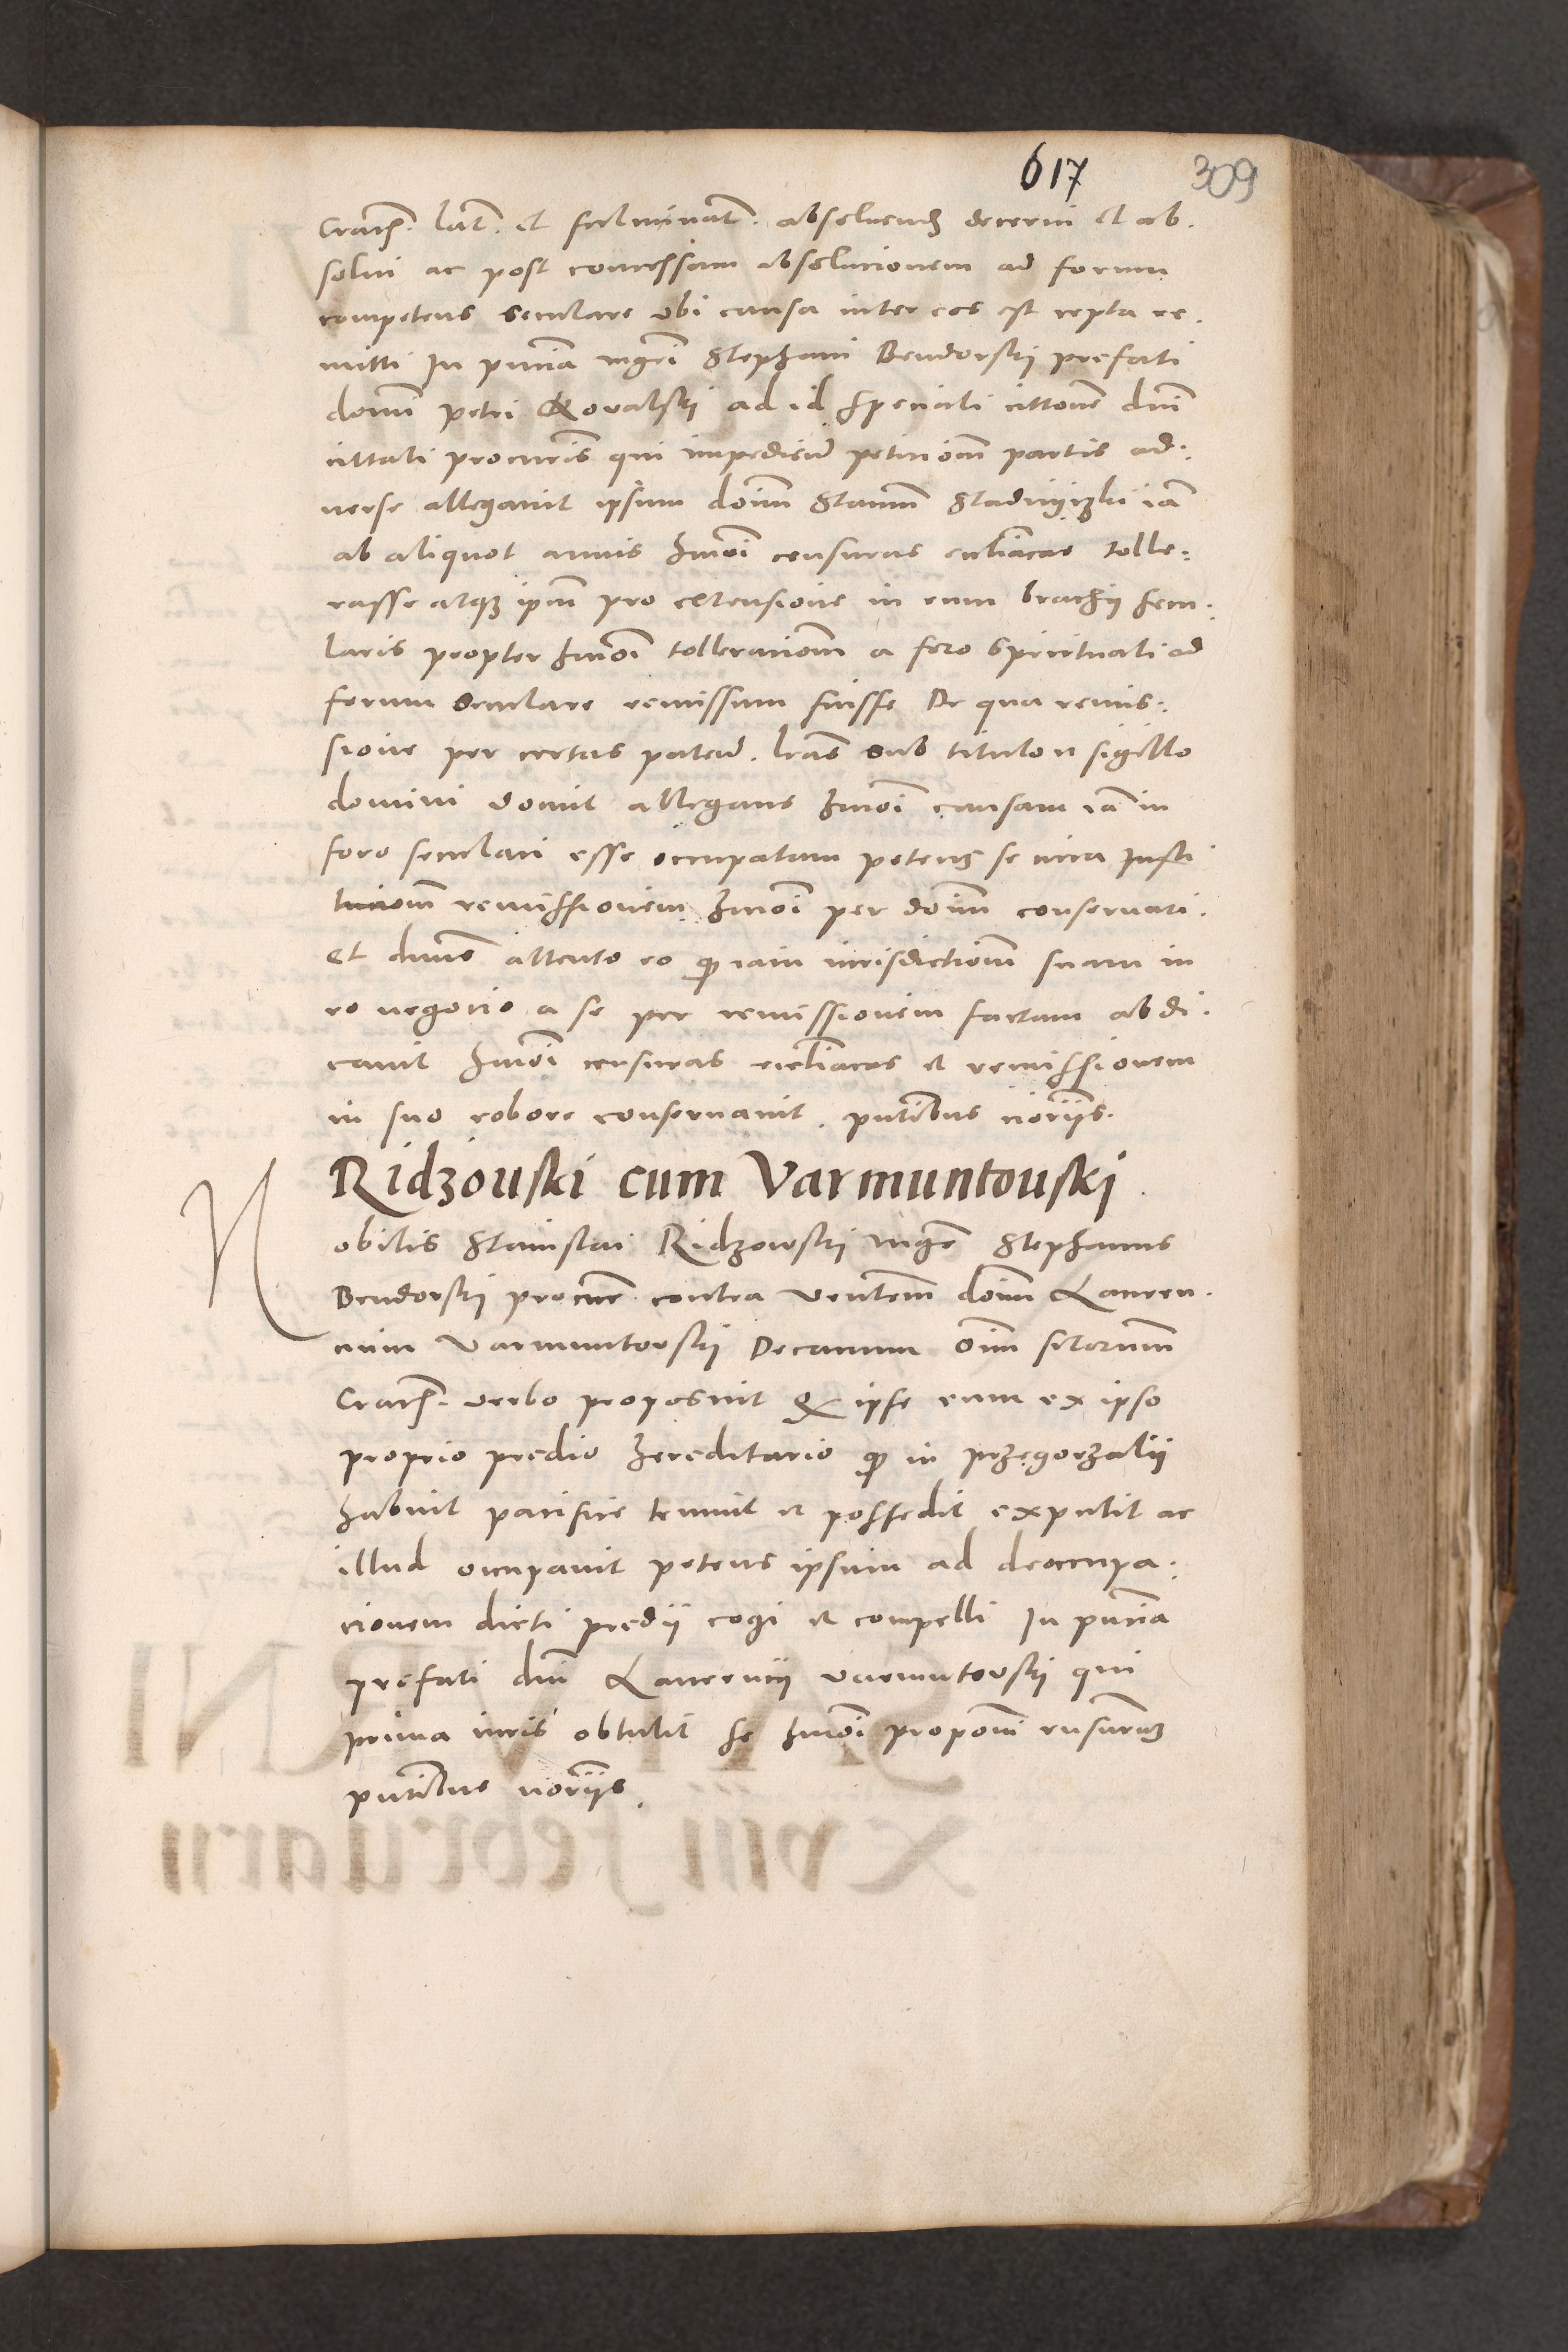 617 309
Cracs. lat. et fulminat. absoluend decerni et ab.
solui ac post concessam absolucionem ad forum
competens seculare vbi causa inter eos est cepta re.
mitti In pncia mgri Stephani Bendorskj prefati
domi petri Kovalskj ad id speciali cittone dni
cittati procuris qui impediend peticiom partis ad.
uerse allegauit ipsum doim Stanm Stadnijczki ia
ab aliquot annis hmoi censuras eccliacas tolle.
rasse atq ipm pro extensione in eum brachij secu.
laris propter hmoi tolleraciom a foro spirituali ad
forum seculare remissum fuisse De qua remis.
sione per certas patend. lras sub titulo et sigillo
domini docuit allegans hmoi causam ia in
foro seculari esse occupatam petens se circa Insti
tuciom remissionem hmoi per doim conseruari.
Et dnus attento eo q iam iurisdictiom suam in
eo negocio a se per remissionem factam abdi.
cauit hmoi censuras eccliacas et remissionem
in suo robore conseruauit. pntibus noriis.
Ridzouski cum Varmuntouskj.
Nobilis Stanislai Ridzowskj mgr Stephanus
Bendorskj procur contra ventem doim Lauren.
cium Varmuntovskj Decanum oim sctorum
Cracs. verbo proposuit Q ipse eum ex ipso
proprio predio hereditario q in przegorzalij
habuit pacifice tenuit et possedit expulit ac
illud occupauit petens ipsum ad deoccupa.
cionem dicti predij cogi et compelli In pncia
prefati dni Laurencij varmutovskj qui
prima iuris obtulit se hmoi proponi rusurum
pntibus noriis.